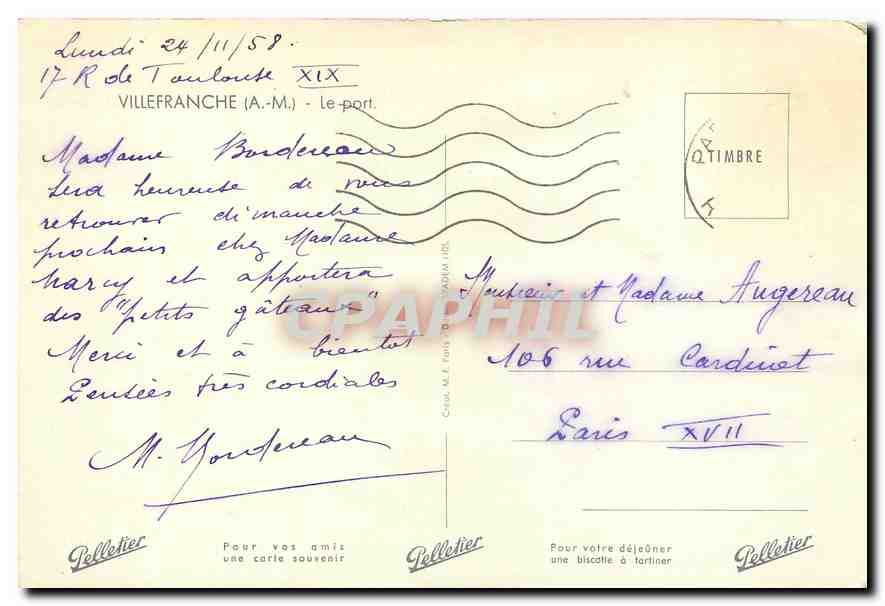 Lundi 24/11/58.
17 R de Toulouse XIX
VILLEFRANCHE (A.-M.) - Le port.
Madame Bordereau
sera heureuse de vous
retrouver dimanche
prochain chez Madame
Marcy et apportera
des "petits gâteaux"
Merci et à bientot
Pensées très cordiales
M. Bordereau
Pelletier
Pour vos amis
une carte souvenir
Pelletier
CPAPHIL
Créat. M. F. Paris
TIMBRE
Monsieur et Madame Augereau
106 rue Cardinet
Paris XVII
Pour votre déjeûner
une biscotte à tartiner
Pelletier